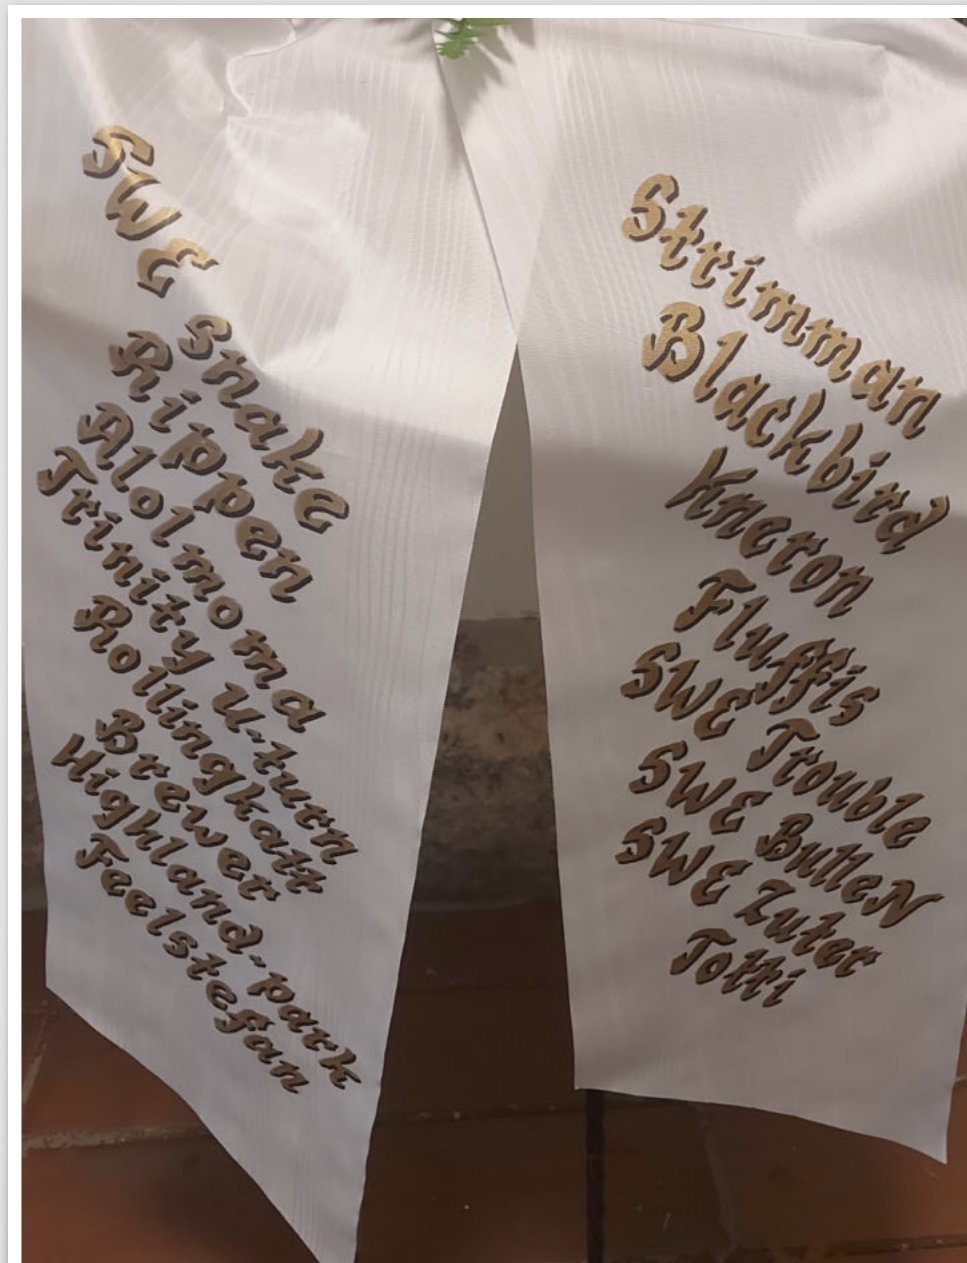 SWE Snake
Rippen
Alolmoma
Trinity U-turn
Rollingkatt
Brewer
Highland-park
Feelstefan
Strimman
Blackbird
Kneron
Fluffis
SWE Trouble
SWE BulleN
SWE Zuter
Totti